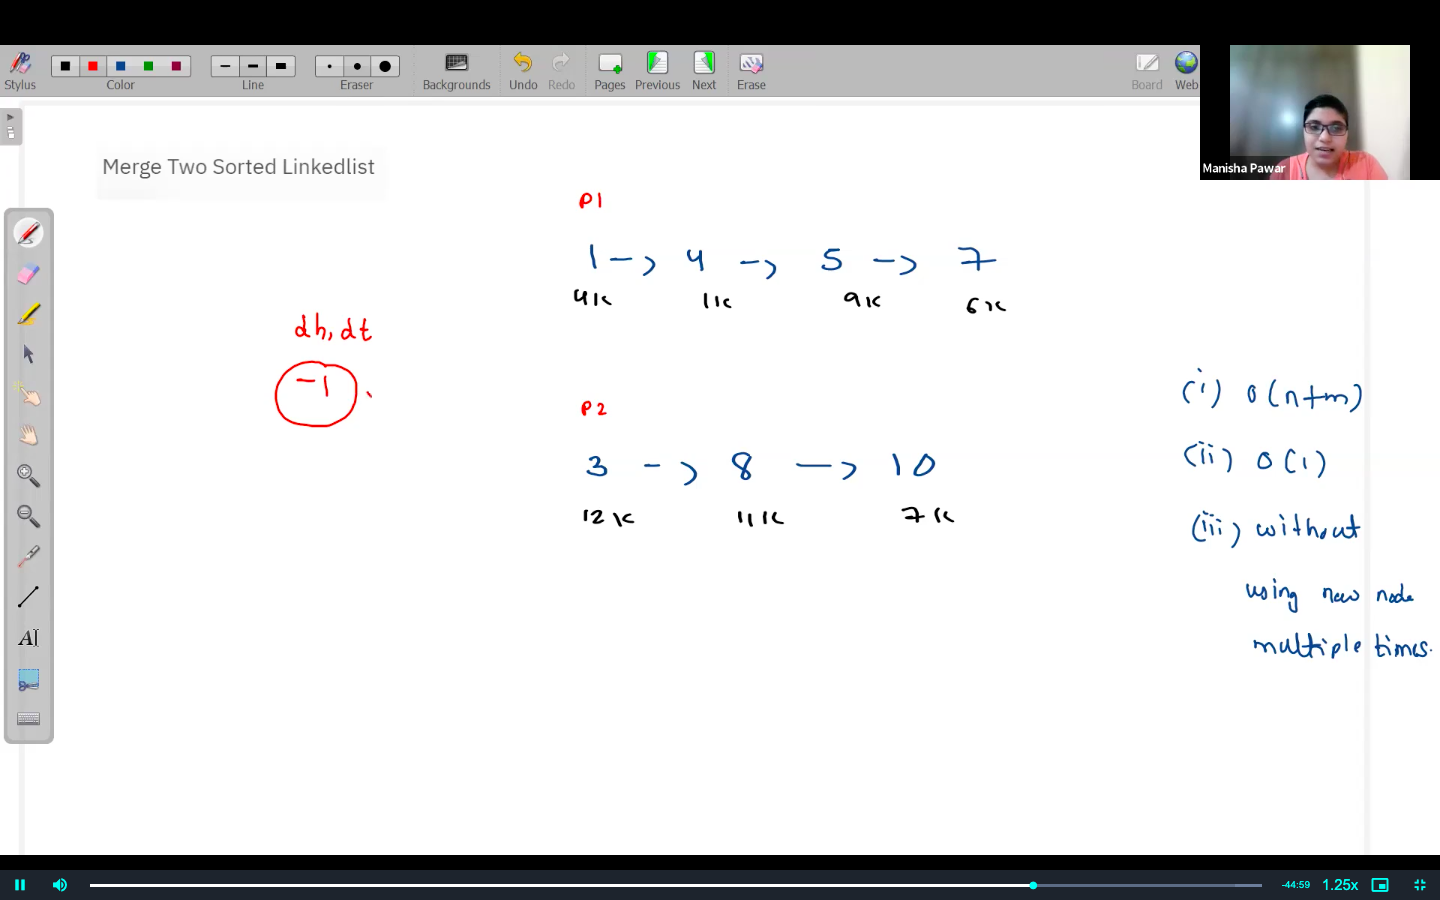 Stylus Color Line Eraser Backgrounds Undo Redo Pages Previous Next Erase Board Web
Manisha Pawar
Merge Two Sorted Linkedlist
P1
1 -> 4 -> 5 -> 7
4K 11K 9K 6K
dh, dt
-1
P2
3 -> 8 -> 10
12K 11K 7K
(i) O(n+m)
(ii) O(1)
(iii) without
using new node
multiple times.
AI
-44:59 1.25x